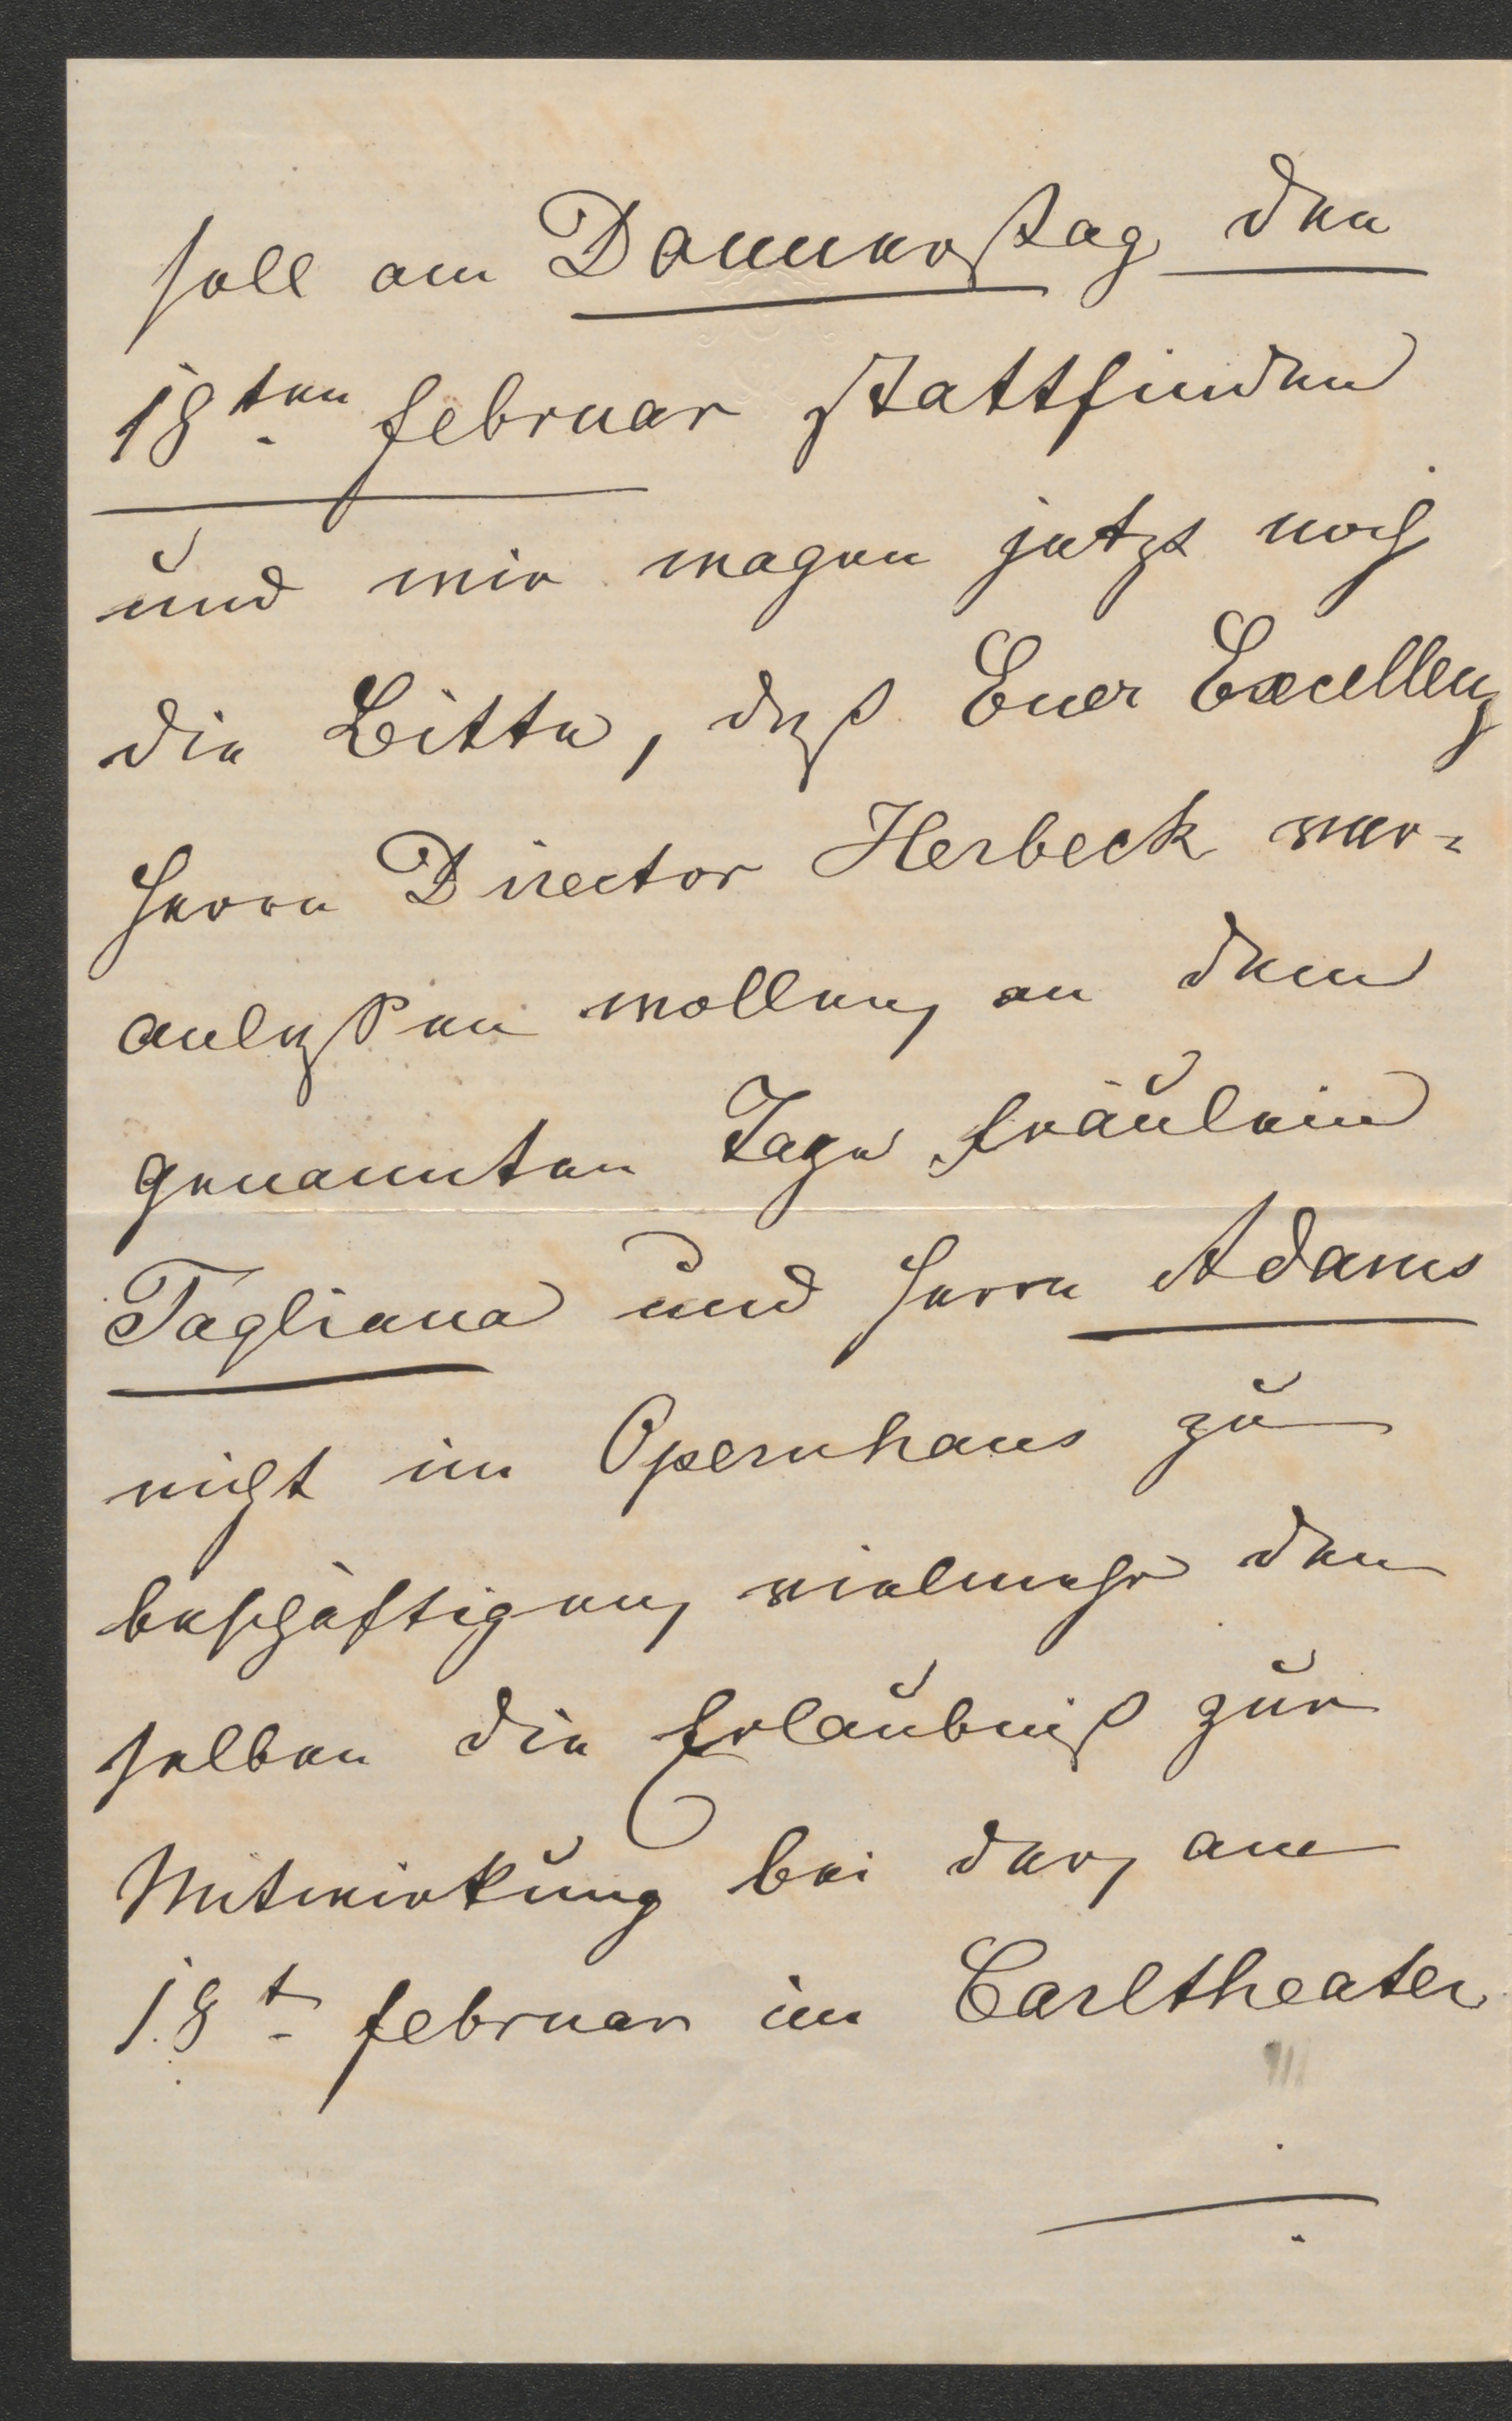 soll am Donnerstag den
18ten Februar stattfinden
und wir wagen jetzt noch
die Bitte, daß Euer Excellenz
Herrn Director Herbeck ver=
anlaßen wollen, an dem
genannten Tage Fräulein
Tagliana und Herrn Adams
nicht im Opernhaus zu
beschäftigen, vielmehr den
selben die Erlaubniß zur
Mitwirkung bei der, am
18t Februar im Carltheater